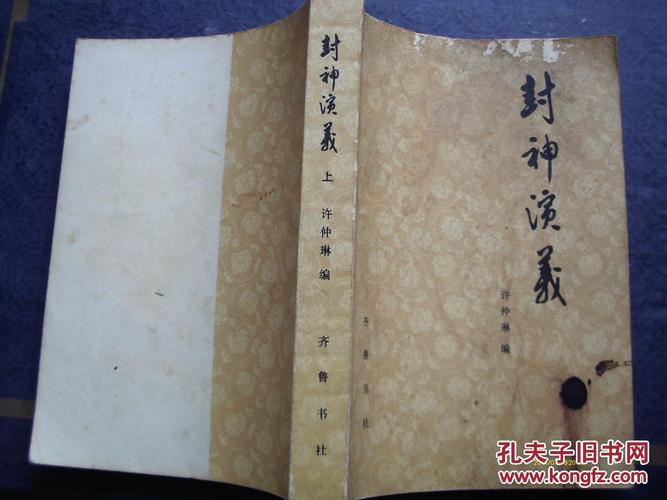 封神演義
许仲琳 编
齐鲁书社
封神演義
上
许仲琳 编
齐鲁书社
孔夫子旧书网